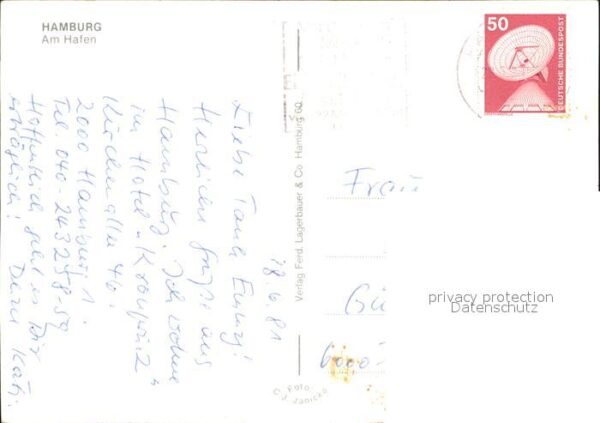 HAMBURG
Am Hafen
50
DEUTSCHE BUNDESPOST
18.6.81
Liebe Tante Emmy!
Herzliche Grüße aus
Hamburg. Ich wohne
im Hotel "Kronprinz"
Kirchenallee 46.
2000 Hamburg 1.
Tel 040-243258-59
Hoffentlich geht es Dir
erträglich! Deine
Verlag Ferd. Lagerbauer & Co Hamburg 60
Foto
C.J. Janicke
Frau
Gü
6000
privacy protection
Datenschutz